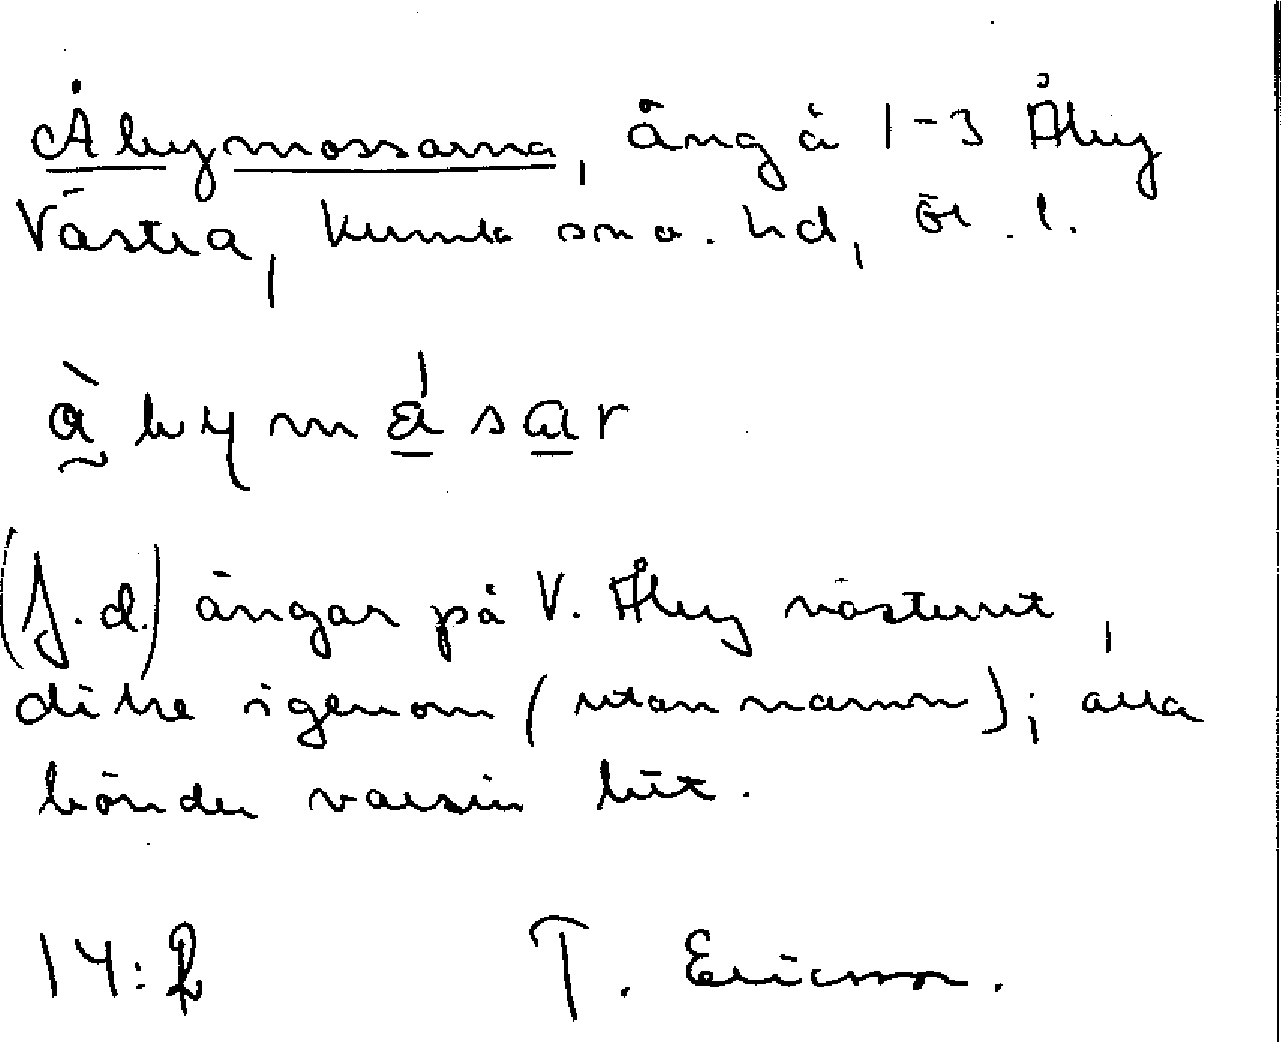 Åbymossarna, äng å 1-3 Åby
Västra, Kumla sn o. hd, Ör. l.
åbymåsar
(f.d.) ängar på V. Åby västerut,
dike igenom (utan namn); alla
bönder varsin bit.
14:
T. Ericsson.